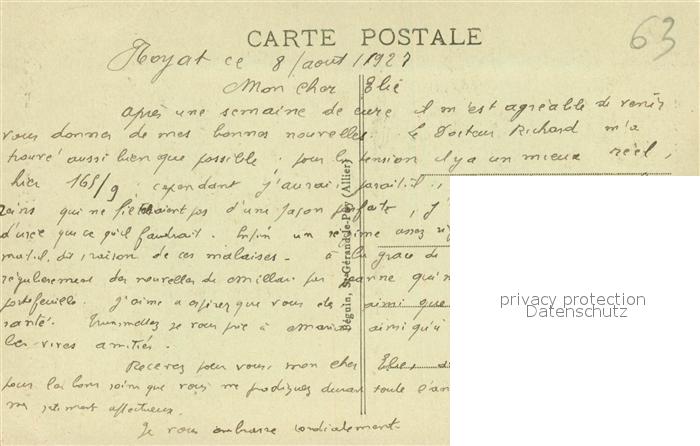 CARTE POSTALE
63
Royat ce 8/août/1927
Mon cher Elie
Après une semaine de cure il m'est agréable de venir
vous donner de mes bonnes nouvelles. Le Docteur Richard m'a
trouvé aussi bien que possible. pour la tension il y a un mieux réel,
hier 165/9. cependant j'aurai, paraît-il,
reins qui ne pas d'une façon parfaite, j'
d'urée que ce qu'il faudrait. Enfin un régime assez
raison de ces malaises. à la grace de
régulièrement des nouvelles de Millau par Jeanne qu'
portefeuille. J'aime a espérer que vous êtes ainsi que
santé. Transmettez je vous prie à Maria ainsi qu'à
les vives amitiés.
Recevez pour vous, mon cher Elie,
pour les bons soins que vous me prodiguez durant toute l'an
affectueux.
Je vous embrasse cordialement.
Béguin, St-Gérand-le-Puy (Allier)
privacy protection
Datenschutz